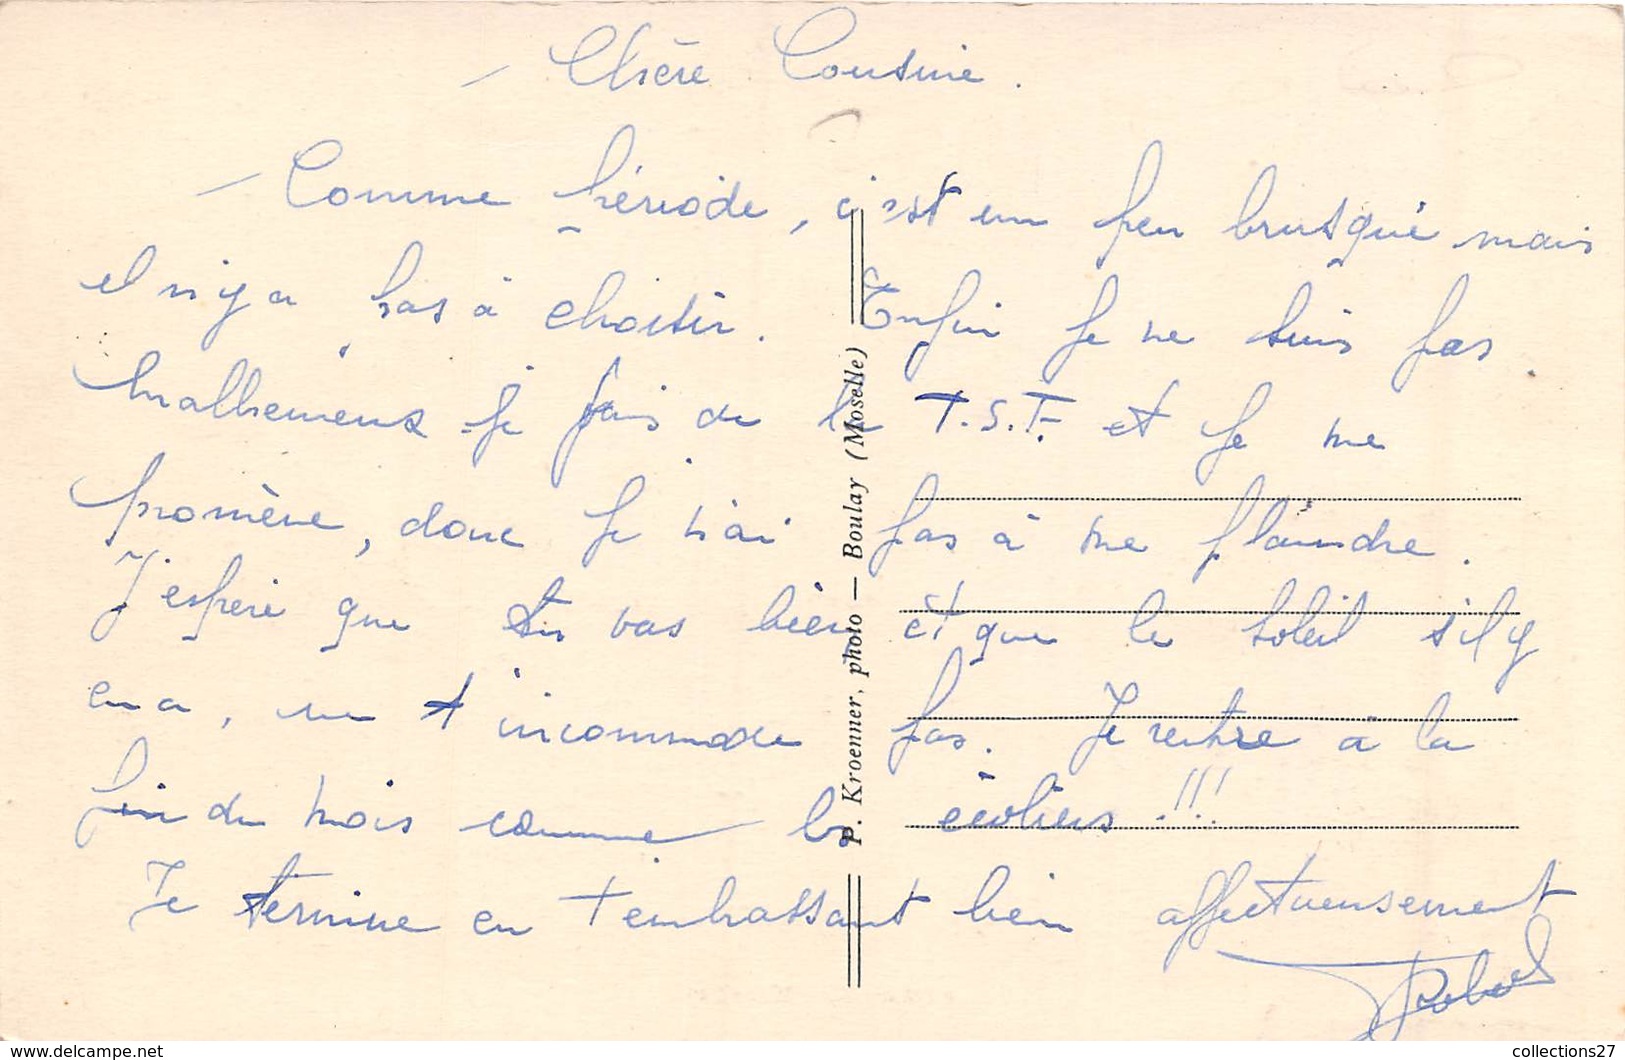 - Chère Cousine.
- Comme période, c'est un peu brusqué mais
il n'y a pas à choisir. Enfin je ne suis pas
malheureux je fais de la T.S.F. et je me
promène, donc je n'ai pas à me plaindre.
J'espère que tu vas bien, et que le soleil s'il y
en a, ne t'incommode pas. Je rentre à la
fin du mois comme les écoliers !!!
Je termine en t'embrassant bien affectueusement
P. Kroenner, photo — Boulay (Moselle)
collections27